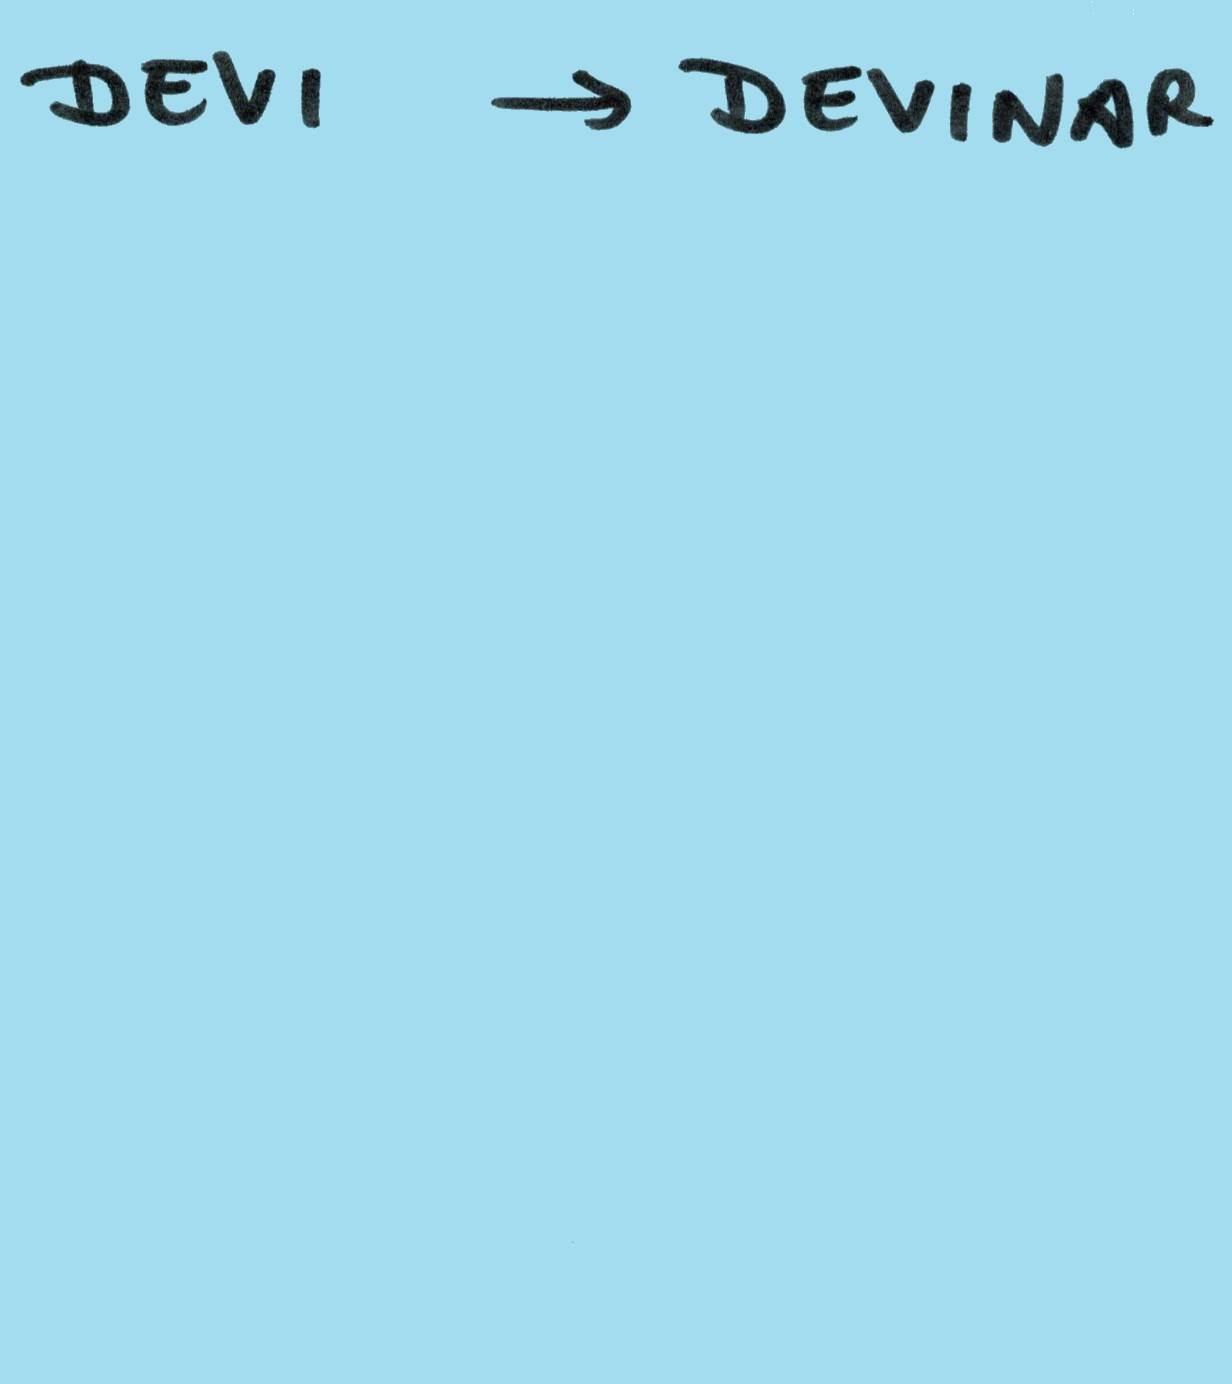 DEVI → DEVINAR